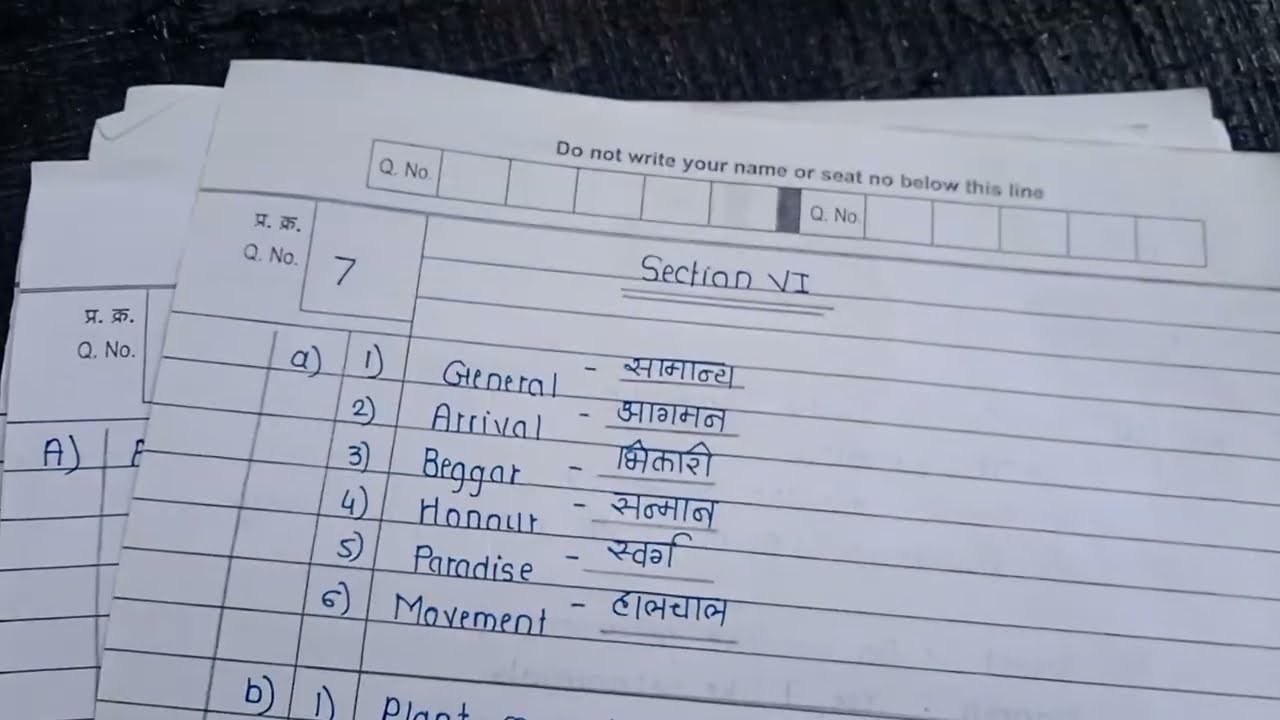 Do not write your name or seat no below this line
Q. No. Q. No.
प्र. क्र.
Q. No. 7
Section VI
a) 1) General - सामान्य
2) Arrival - आगमन
3) Beggar - भिकारी
4) Honour - सन्मान
5) Paradise - स्वर्ग
6) Movement - हालचाल
b) 1) Plant
प्र. क्र.
Q. No.
A)